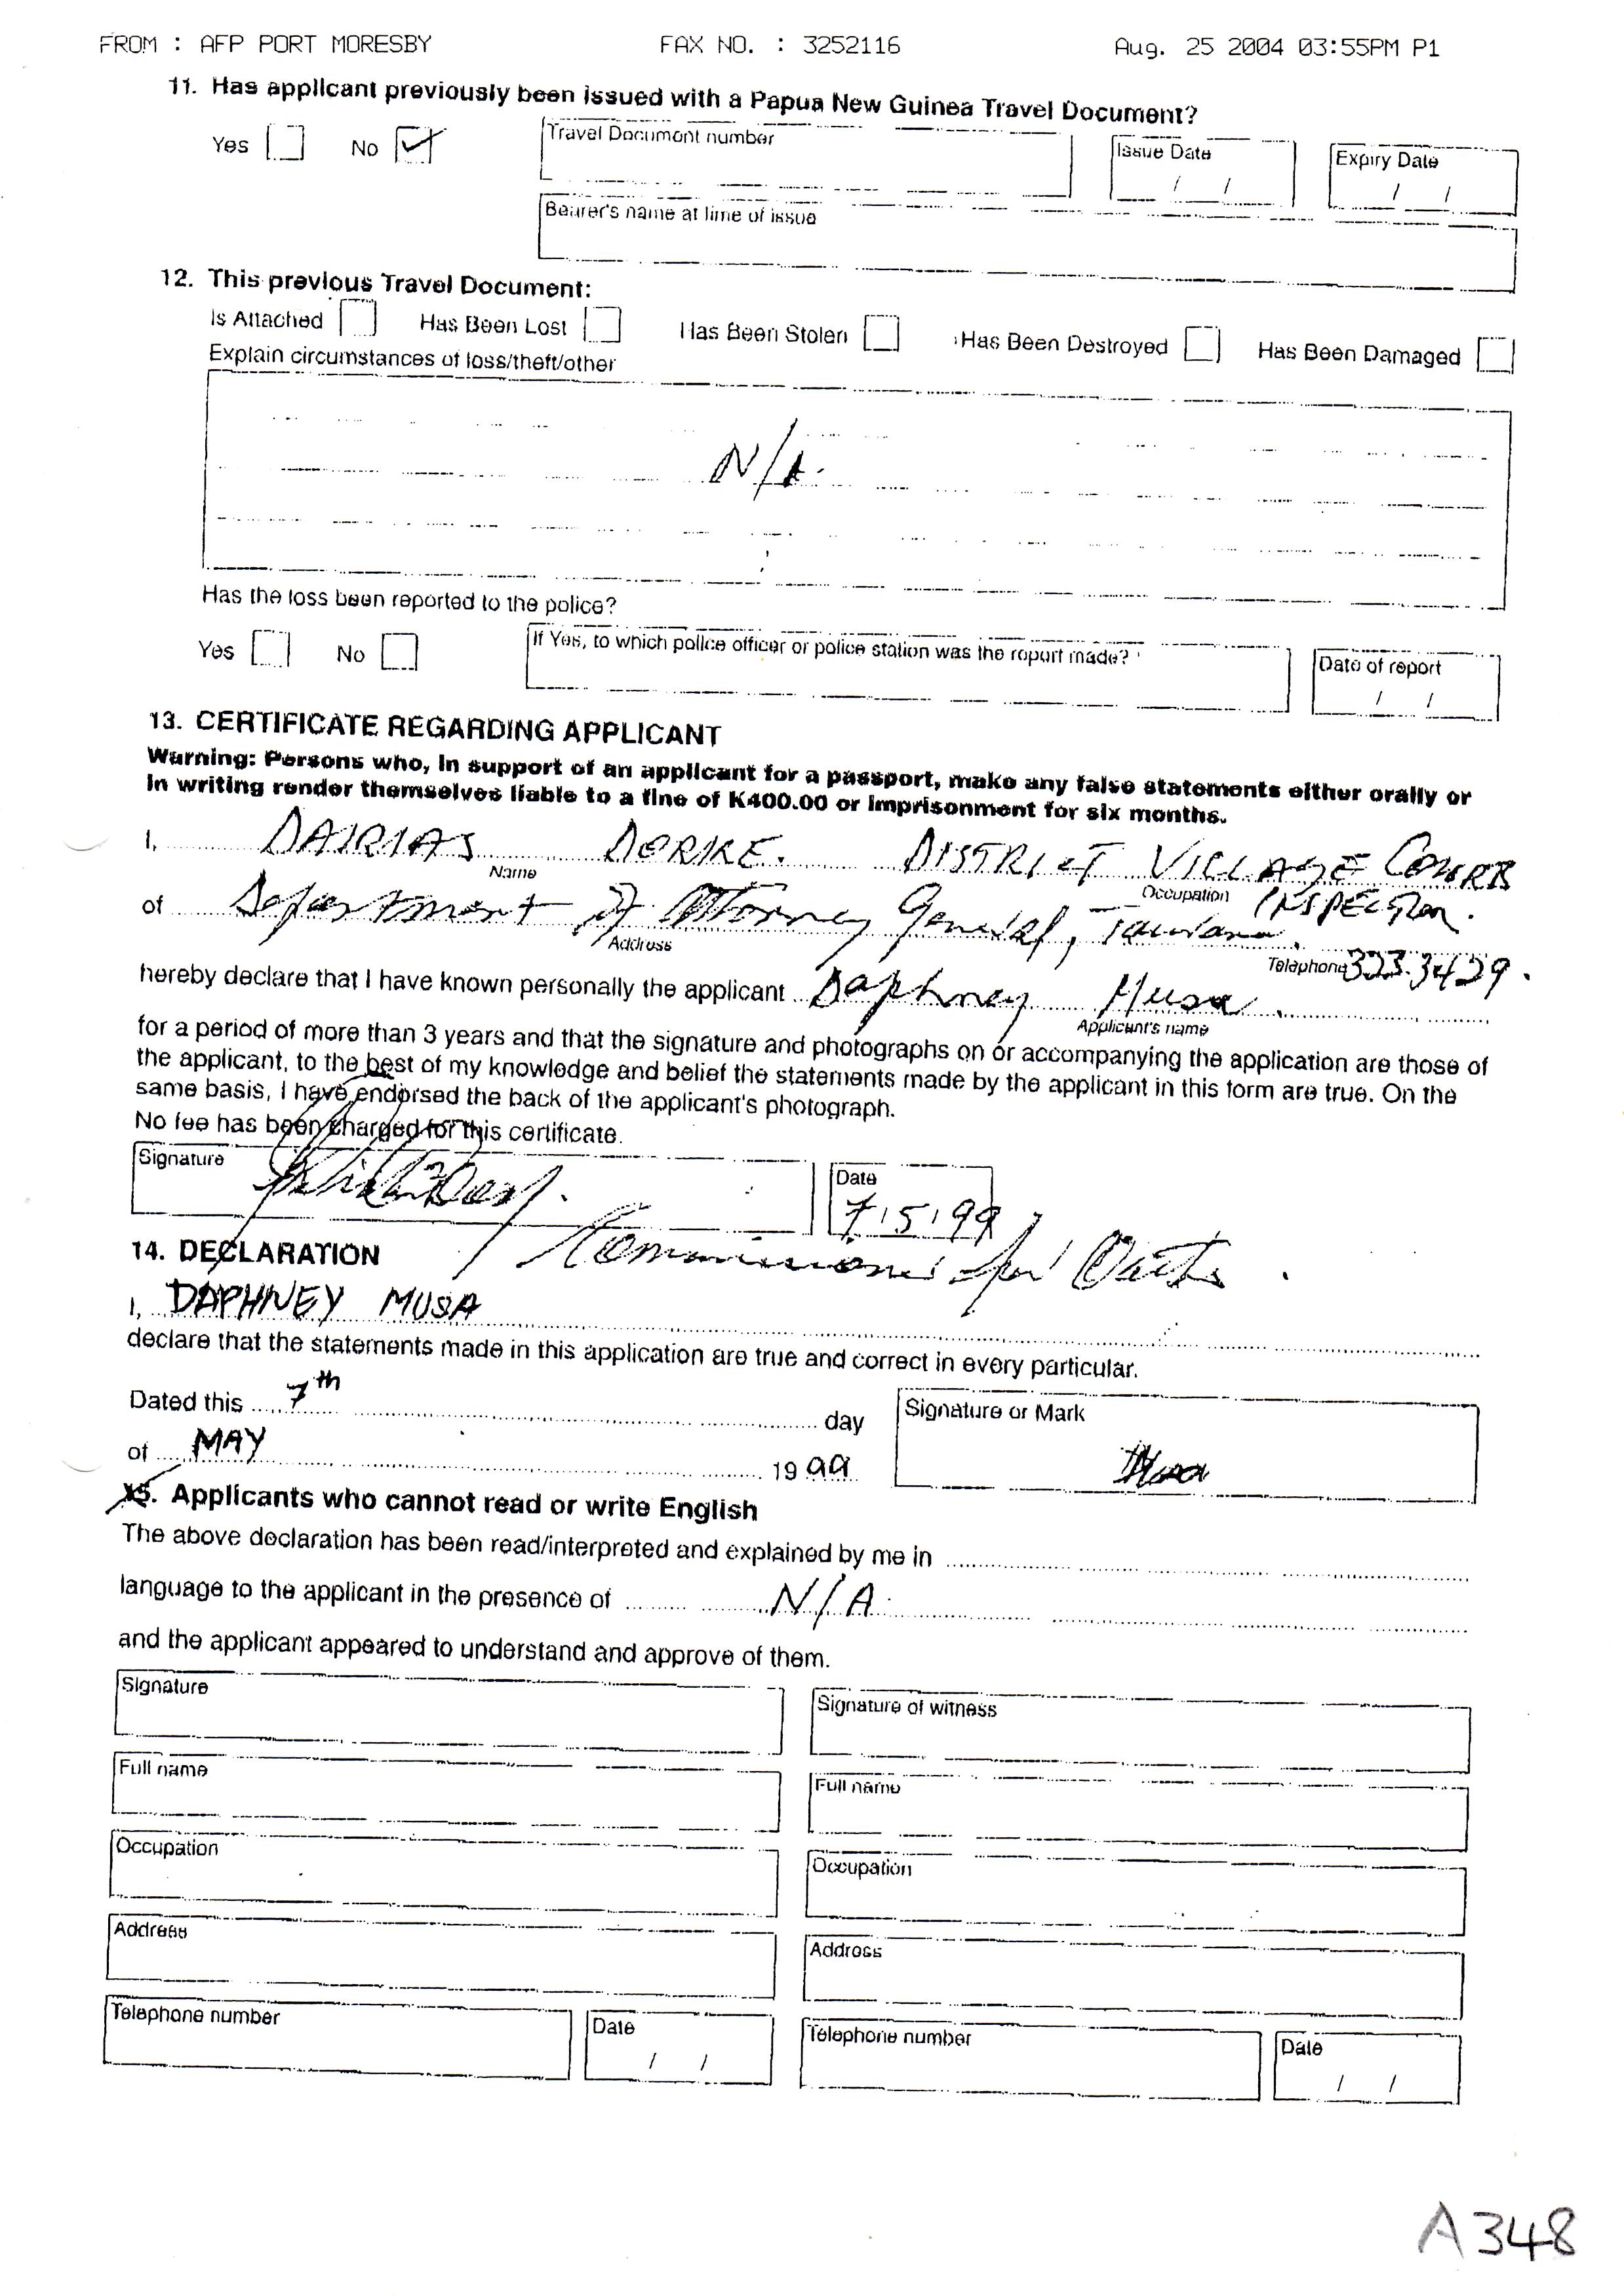 FROM : AFP PORT MORESBY FAX NO. : 3252116 Aug. 25 2004 03:55PM P1
11. Has applicant previously been issued with a Papua New Guinea Travel Document?
Yes No
Travel Document number
Issue Date
Expiry Date
/ / / /
Bearer's name at time of issue
12. This previous Travel Document:
Is Attached Has Been Lost Has Been Stolen Has Been Destroyed Has Been Damaged
Explain circumstances of loss/theft/other
N/A
Has the loss been reported to the police?
Yes No
If Yes, to which police officer or police station was the report made?
Date of report
/ /
13. CERTIFICATE REGARDING APPLICANT
Warning: Persons who, in support of an applicant for a passport, make any false statements either orally or
in writing render themselves liable to a fine of K400.00 or imprisonment for six months.
I, DAIRIAS DORIKE. DISTRICT VILLAGE COURTS
Name Occupation INSPECTOR.
of Department of Attorney General,
Address
Telephone 323.3429.
hereby declare that I have known personally the applicant Daphney Musa
Applicant's name
for a period of more than 3 years and that the signature and photographs on or accompanying the application are those of
the applicant, to the best of my knowledge and belief the statements made by the applicant in this form are true. On the
same basis, I have endorsed the back of the applicant's photograph.
No fee has been charged for this certificate.
Signature
Date
7/5/99
Commissioner for Oaths.
14. DECLARATION
I, DAPHNEY MUSA
declare that the statements made in this application are true and correct in every particular.
Dated this 7th day
of MAY 1999
Signature or Mark
Musa
15. Applicants who cannot read or write English
The above declaration has been read/interpreted and explained by me in
language to the applicant in the presence of N/A
and the applicant appeared to understand and approve of them.
Signature
Signature of witness
Full name
Full name
Occupation
Occupation
Address
Address
Telephone number
Date
/ /
Telephone number
Date
/ /
A348